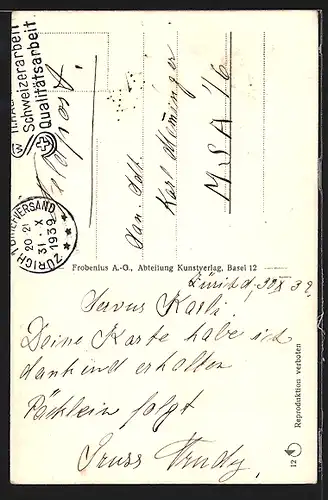 Schweizerarbeit
Qualitätsarbeit
BRIEFVERSAND
ZÜRICH
20-21
31. X
1939
Feldpost.
San. Sdt.
Karl
M.S.A. 1/6
Frobenius A.-G., Abteilung Kunstverlag, Basel 12
Zürich, 30 X 39.
Servus Karli.
Deine Karte habe ich
dankend erhalten
Päcklein folgt
Gruss Trudy
Reproduktion verboten
12